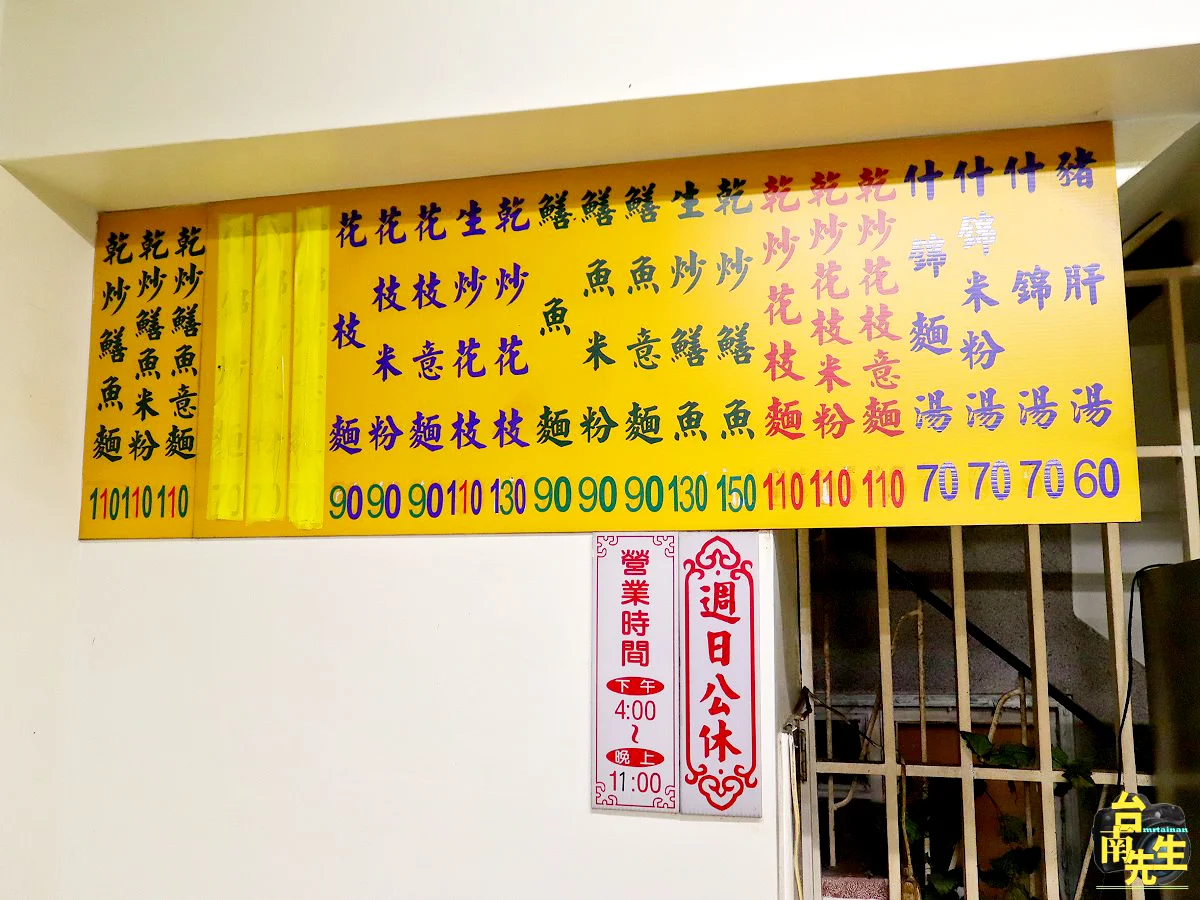 豬肝湯 60
什錦湯 70
什錦米粉湯 70
什錦麵湯 70
乾炒花枝意麵 110
乾炒花枝米粉 110
乾炒花枝麵 110
乾炒鱔魚 150
生炒鱔魚 130
鱔魚意麵 90
鱔魚米粉 90
鱔魚麵 90
乾炒花枝 130
生炒花枝 110
花枝意麵 90
花枝米粉 90
花枝麵 90
乾炒鱔魚意麵 110
乾炒鱔魚米粉 110
乾炒鱔魚麵 110
週日公休
營業時間
下午
4:00
~
晚上
11:00
台南先生
mrtainan